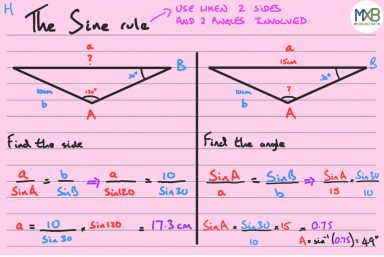 H
The Sine rule
USE WHEN 2 SIDES
AND 2 ANGLES INVOLVED
MXB
a
?
B
30°
10cm
b
120°
A
Find the side
a/SinA = b/SinB ⇒ a/Sin120 = 10/Sin30
a = 10/Sin30 × Sin120 = 17.3cm
a
15cm
B
30°
10cm
b
?
A
Find the angle
SinA/a = SinB/b ⇒ SinA/15 = Sin30/10
SinA = Sin30/10 × 15 = 0.75
A = sin⁻¹(0.75) = 49°